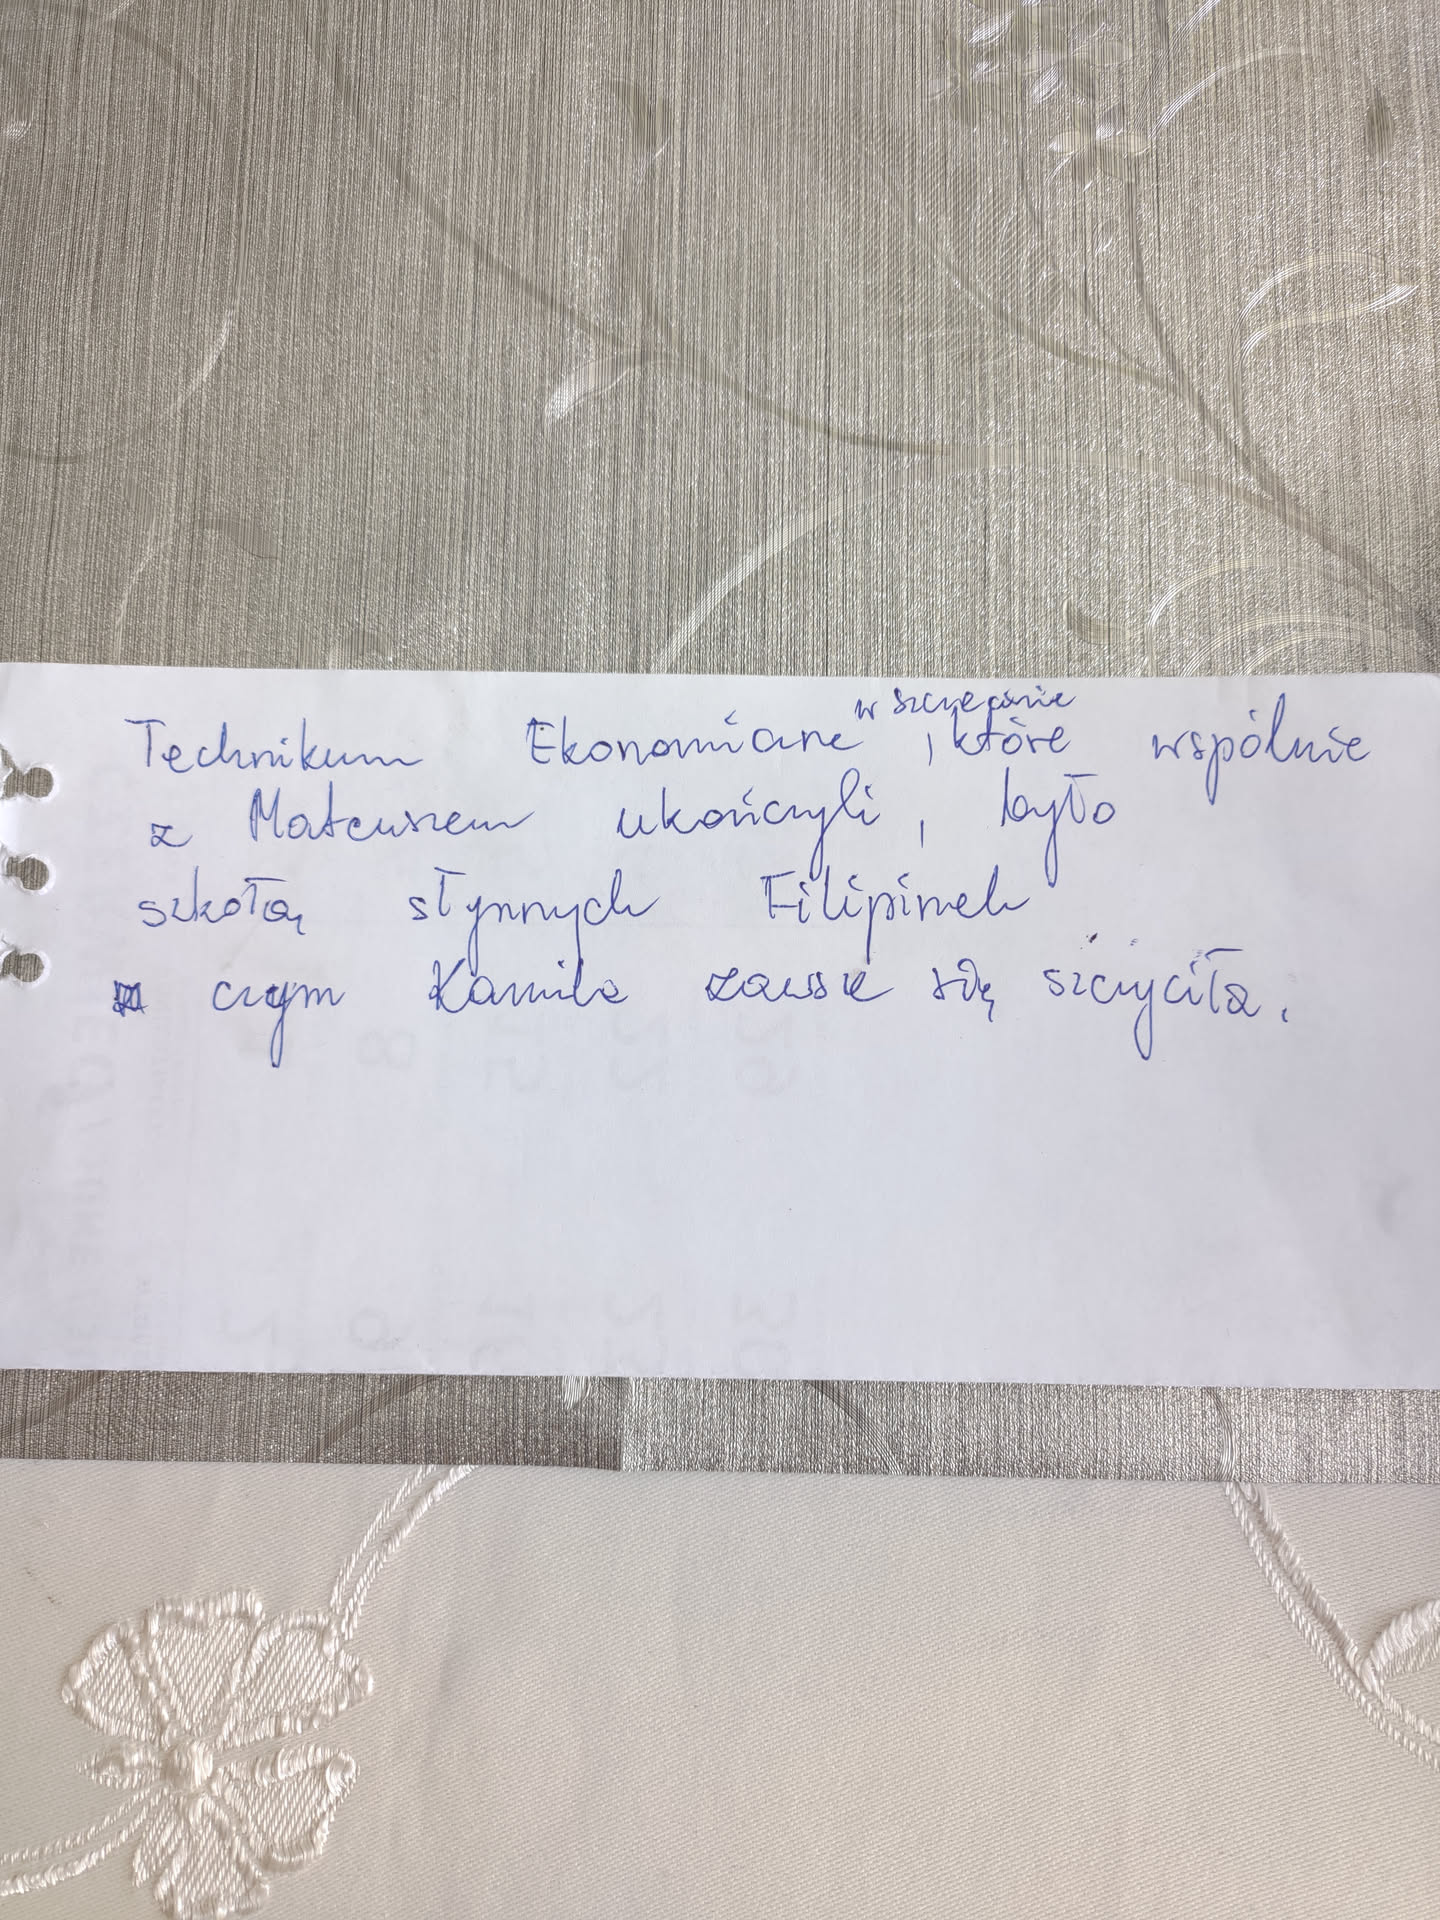 Technikum Ekonomiczne w Szczecinie, które wspólnie
z Mateuszem ukończyli, było
szkołą słynnych Filipinek
czym Kamila zawsze się szczyciła.